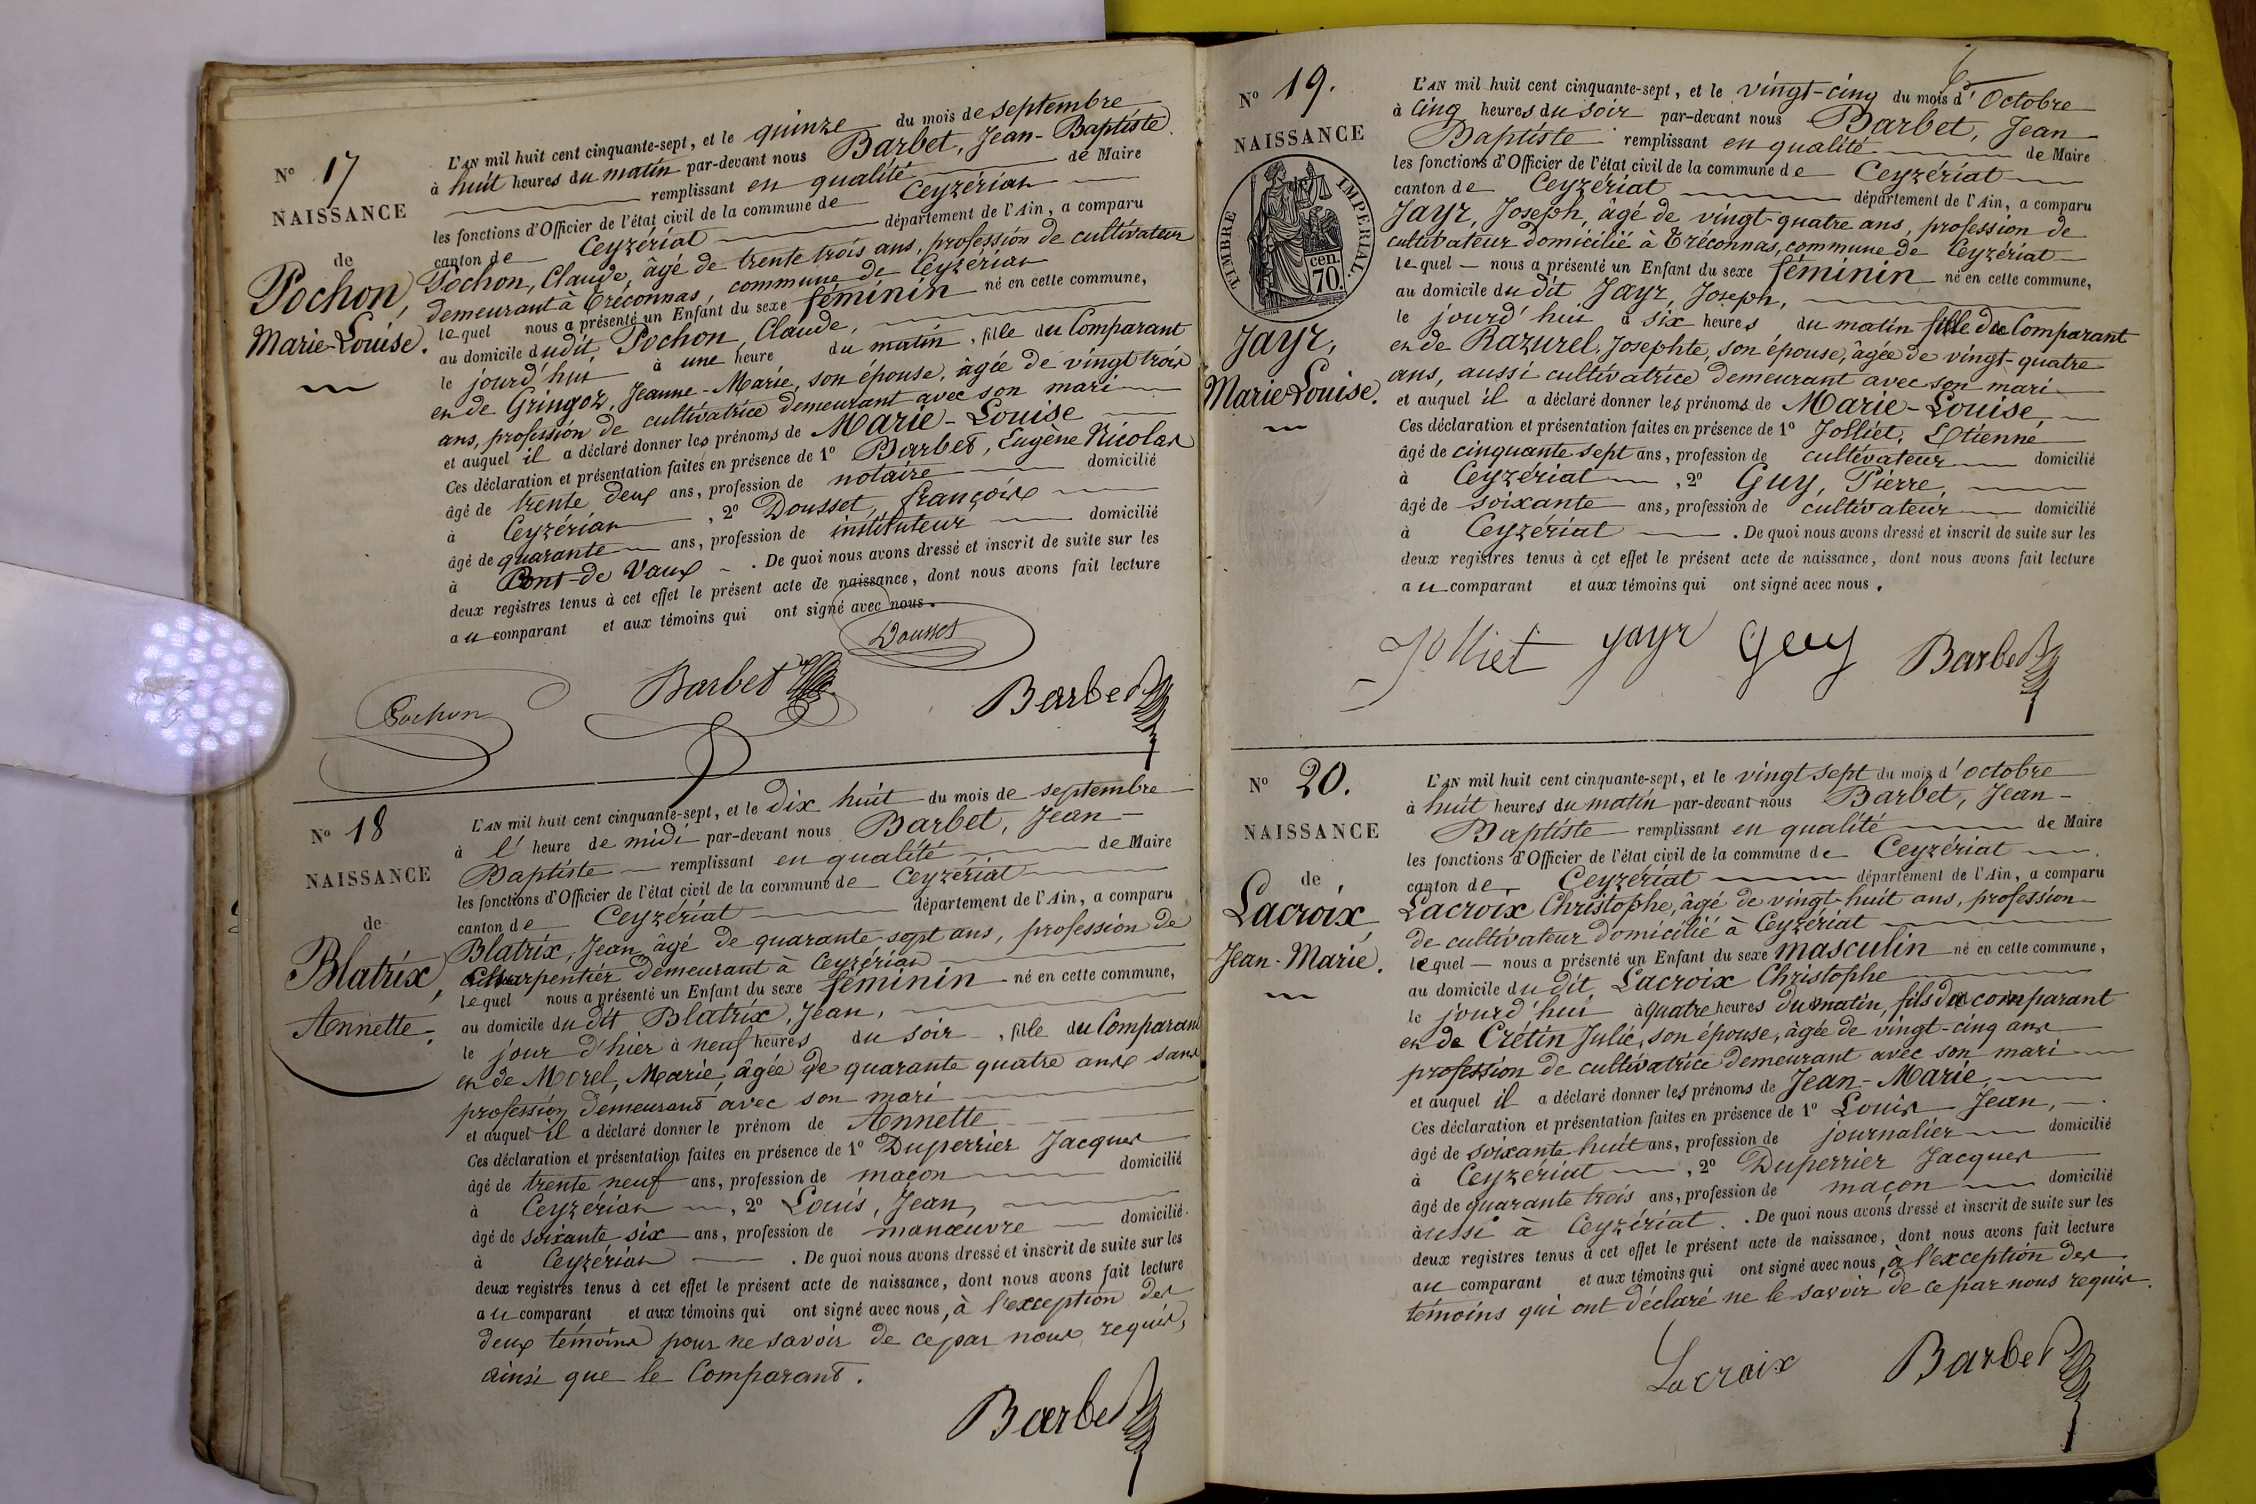 N° 17
NAISSANCE
de
Pochon,
Marie-Louise.
L'AN mil huit cent cinquante-sept, et le quinze du mois de septembre
à huit heures du matin par-devant nous Barbet, Jean-Baptiste
remplissant en qualité de Maire
les fonctions d'Officier de l'état civil de la commune de Ceyzériat
canton de Ceyzériat département de l'Ain, a comparu
Pochon, Claude, âgé de trente trois ans, profession de cultivateur
demeurant à Tréconnas, commune de Ceyzériat
lequel nous a présenté un Enfant du sexe féminin né en cette commune,
au domicile dudit, Pochon, Claude,
le jourd'hui à une heure du matin, fille du Comparant
et de Gringoz, Jeanne-Marie, son épouse, âgée de vingt trois
ans, profession de cultivatrice demeurant avec son mari
et auquel il a déclaré donner les prénoms de Marie-Louise
Ces déclaration et présentation faites en présence de 1° Barbet, Eugène Nicolas
âgé de trente deux ans, profession de notaire domicilié
à Ceyzériat, 2° Dousset, françois
âgé de quarante ans, profession de instituteur domicilié
à Pont-de Vaux. De quoi nous avons dressé et inscrit de suite sur les
deux registres tenus à cet effet le présent acte de naissance, dont nous avons fait lecture
au comparant et aux témoins qui ont signé avec nous.
Dousset
Pochon Barbet Barbet
N° 18
NAISSANCE
de
Blatrix,
Annette.
L'AN mil huit cent cinquante-sept, et le dix huit du mois de septembre
à l' heure de midi par-devant nous Barbet, Jean-
Baptiste remplissant en qualité de Maire
les fonctions d'Officier de l'état civil de la commune de Ceyzériat
canton de Ceyzériat département de l'Ain, a comparu
Blatrix, Jean, âgé de quarante sept ans, profession de
charpentier demeurant à Ceyzériat
lequel nous a présenté un Enfant du sexe féminin né en cette commune,
au domicile du dit Blatrix, Jean,
le jour d'hier à neuf heures du soir, fille du Comparant
et de Morel, Marie, âgée de quarante quatre ans sans
profession demeurant avec son mari
et auquel il a déclaré donner le prénom de Annette
Ces déclaration et présentation faites en présence de 1° Duperrier Jacques
âgé de trente neuf ans, profession de maçon domicilié
à Ceyzériat, 2° Louis, Jean,
âgé de soixante six ans, profession de manœuvre domicilié
à Ceyzériat. De quoi nous avons dressé et inscrit de suite sur les
deux registres tenus à cet effet le présent acte de naissance, dont nous avons fait lecture
au comparant et aux témoins qui ont signé avec nous, à l'exception des
deux témoins pour ne savoir de ce par nous requis,
ainsi que le Comparant.
Barbet
N° 19.
NAISSANCE
TIMBRE IMPERIAL.
cen. 70.
Jayr,
Marie Louise.
L'AN mil huit cent cinquante-sept, et le vingt-cinq du mois d'Octobre
à cinq heures du soir par-devant nous Barbet, Jean
Baptiste remplissant en qualité de Maire
les fonctions d'Officier de l'état civil de la commune de Ceyzériat
canton de Ceyzériat département de l'Ain, a comparu
Jayr, Joseph, âgé de vingt-quatre ans, profession de
cultivateur domicilié à Tréconnas, commune de Ceyzériat
lequel nous a présenté un Enfant du sexe féminin né en cette commune,
au domicile du dit Jayr, Joseph,
le jourd'hui à six heures du matin fille du Comparant
et de Razurel, Josephte, son épouse, âgée de vingt-quatre
ans, aussi cultivatrice demeurant avec son mari
et auquel il a déclaré donner les prénoms de Marie-Louise,
Ces déclaration et présentation faites en présence de 1° Jolliet, Etienne
âgé de cinquante sept ans, profession de cultivateur domicilié
à Ceyzériat, 2° Guy, Pierre,
âgé de soixante ans, profession de cultivateur domicilié
à Ceyzériat. De quoi nous avons dressé et inscrit de suite sur les
deux registres tenus à cet effet le présent acte de naissance, dont nous avons fait lecture
au comparant et aux témoins qui ont signé avec nous.
Jolliet Jayr Guy Barbet
N° 20.
NAISSANCE
de
Lacroix,
Jean-Marie.
L'AN mil huit cent cinquante-sept, et le vingt sept du mois d'octobre
à huit heures du matin par-devant nous Barbet, Jean-
Baptiste remplissant en qualité de Maire
les fonctions d'Officier de l'état civil de la commune de Ceyzériat
canton de Ceyzériat département de l'Ain, a comparu
Lacroix Christophe, âgé de vingt-huit ans, profession
de cultivateur domicilié à Ceyzériat
lequel nous a présenté un Enfant du sexe masculin né en cette commune,
au domicile du dit Lacroix Christophe
le jourd'hui à quatre heures du matin, fils du comparant
et de Crétin Julie, son épouse, âgée de vingt-cinq ans
profession de cultivatrice demeurant avec son mari
et auquel il a déclaré donner les prénoms de Jean-Marie,
Ces déclaration et présentation faites en présence de 1° Louis Jean,
âgé de soixante huit ans, profession de journalier domicilié
à Ceyzériat, 2° Duperrier Jacques
âgé de quarante trois ans, profession de maçon domicilié
aussi à Ceyzériat. De quoi nous avons dressé et inscrit de suite sur les
deux registres tenus à cet effet le présent acte de naissance, dont nous avons fait lecture
au comparant et aux témoins qui ont signé avec nous, à l'exception des
témoins qui ont déclaré ne le savoir de ce par nous requis.
Lacroix Barbet